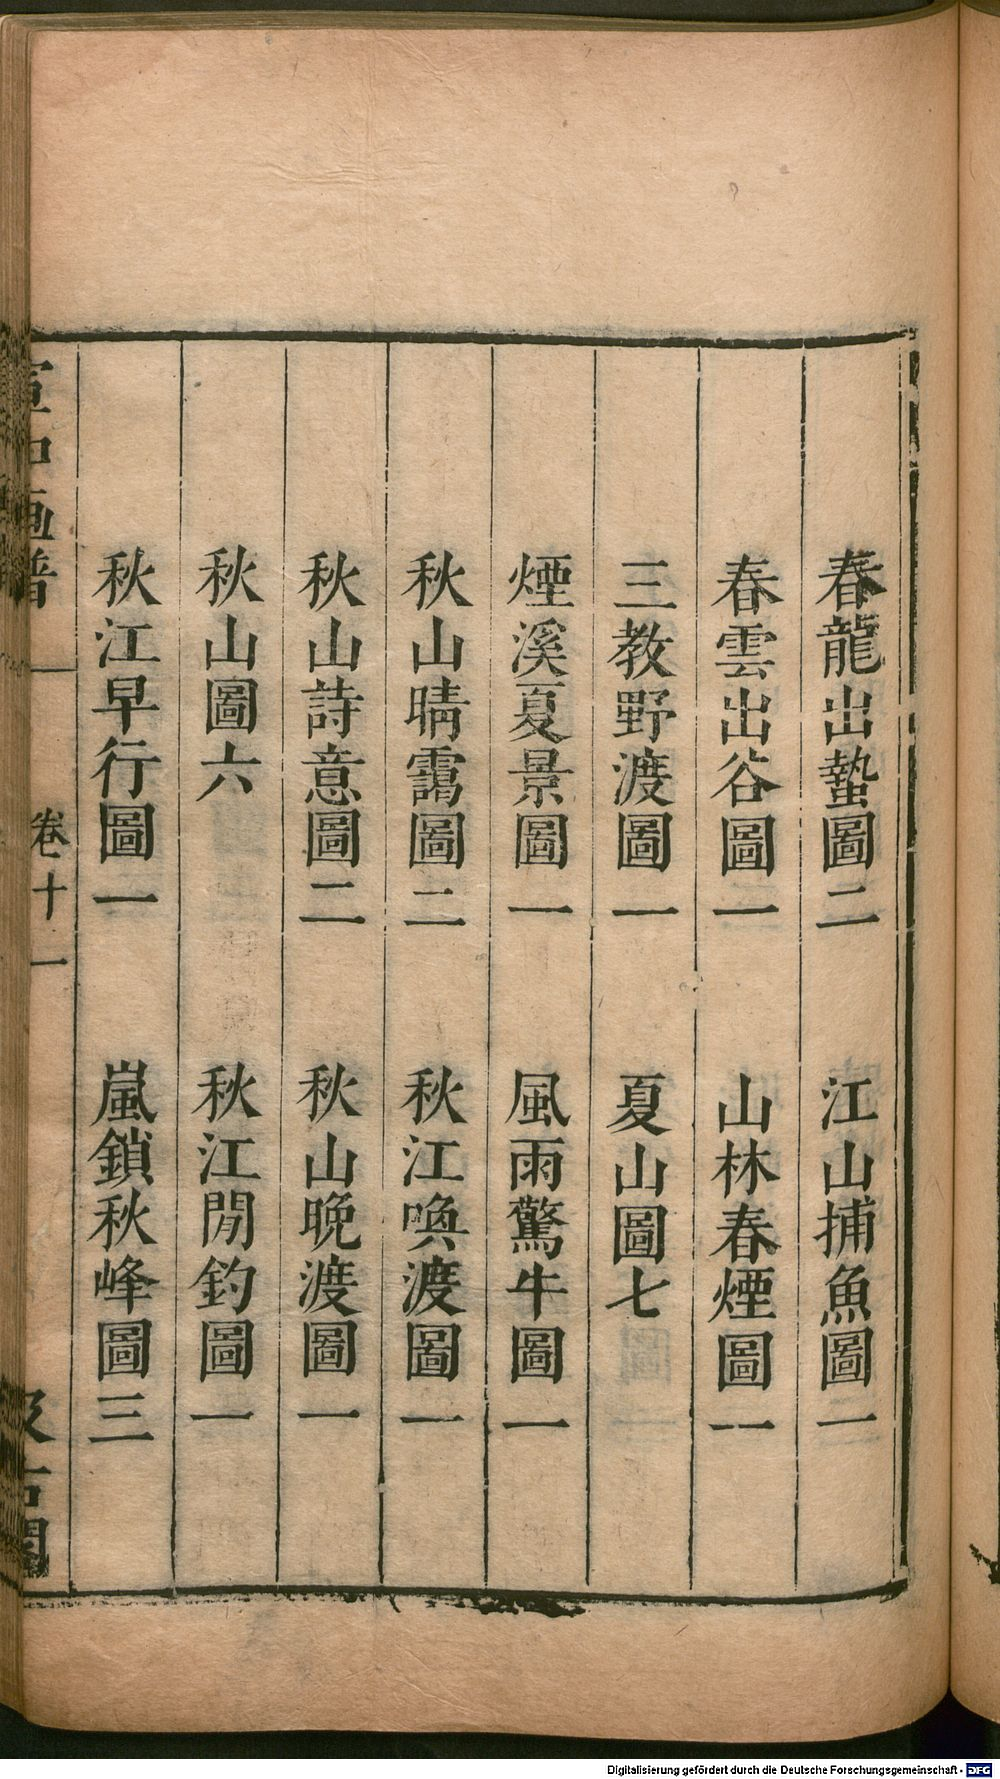 春龍出蟄圖二　江山捕魚圖一
春雲出谷圖一　山林春煙圖一
三教野渡圖一　夏山圖七
煙溪夏景圖一　風雨驚牛圖一
秋山晴靄圖二　秋江喚渡圖一
秋山詩意圖二　秋山晚渡圖一
秋山圖六　秋江閒釣圖一
秋江早行圖一　嵐鎖秋峰圖三
宣和画譜　卷十一　汲古閣
Digitalisierung gefördert durch die Deutsche Forschungsgemeinschaft - DFG